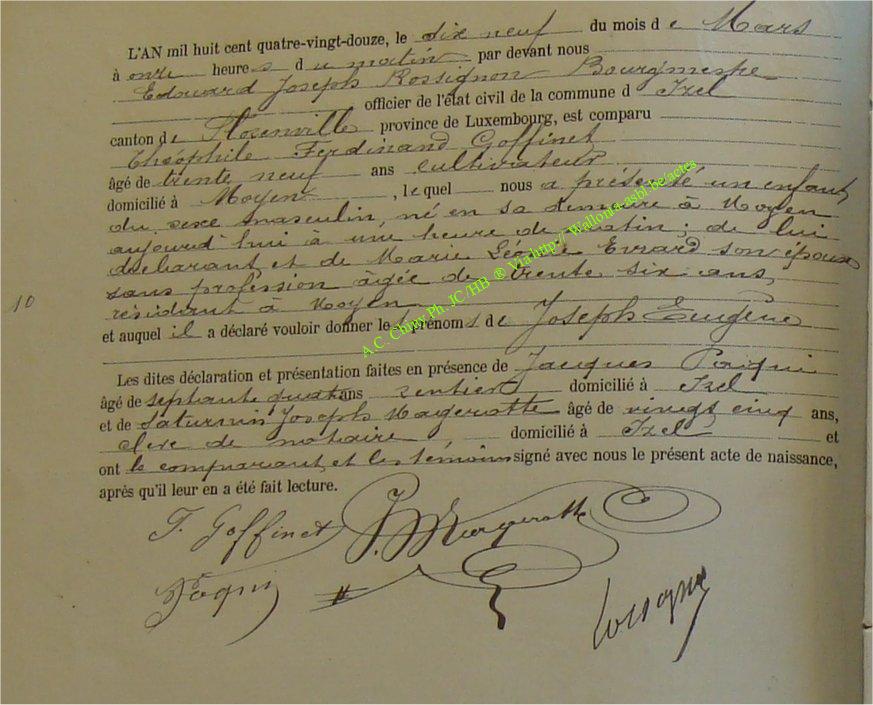 L'AN mil huit cent quatre-vingt-douze, le dix neuf du mois de Mars
à onze heures du matin par devant nous
Edouard Joseph Rossignon Bourgmestre
officier de l'état civil de la commune d Izel
canton de Florenville province de Luxembourg, est comparu
Théophile Ferdinand Goffinet
âgé de trente neuf ans cultivateur
domicilié à Moyen, lequel nous a présenté un enfant
du sexe masculin, né en sa demeure à Moyen
aujourd'hui à une heure de matin; de lui
déclarant et de Marie Evrard son épouse
sans profession âgée de trente six ans,
10
résidant à Moyen
et auquel il a déclaré vouloir donner les prénoms de Joseph Eugène
Les dites déclaration et présentation faites en présence de Jacques Poqui
âgé de septante quatre ans rentier domicilié à Izel
et de Saturnin Joseph Margerotte âgé de vingt cinq ans,
clerc de notaire domicilié à Izel et
ont le comparant et les témoins signé avec nous le présent acte de naissance,
après qu'il leur en a été fait lecture.
A.C. Chiny Ph. JC /HB ® Via http// Wallonia-asbl.be/actes
T. Goffinet J. Margerotte
Poqui